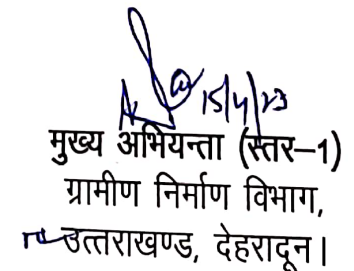 15/4/23
मुख्य अभियन्ता (स्तर–1)
ग्रामीण निर्माण विभाग,
उत्तराखण्ड, देहरादून।